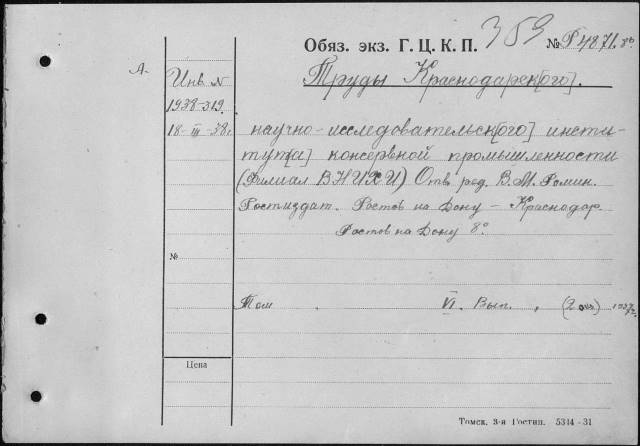 Обяз. экз. Г. Ц. К. П. 359 № Р4871. 8°
А.
Инв N
1938-319
18-III-38г.
Труды Краснодарск[ого].
научно-исследовательск[ого] инсти-
тут[а] консервной промышленности
(Филиал ВНИХИ) Отв. ред. В.М. Фомин.
Ростиздат. Ростов на Дону – Краснодар.
Ростов на Дону 8°
№
Том . VI. Вып. , (2 экз)
Цена
Томск. 3-я Гостип. 5314-31